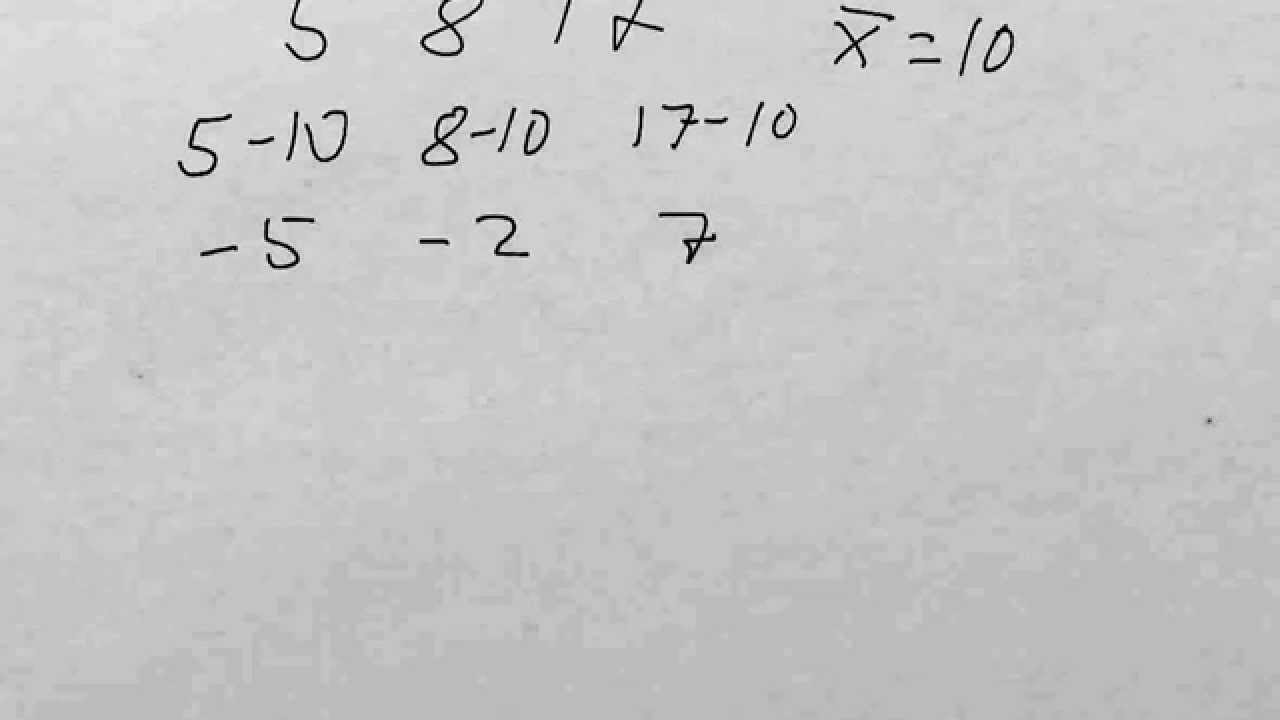 5 8 17 x̅ = 10
5-10 8-10 17-10
-5 -2 7